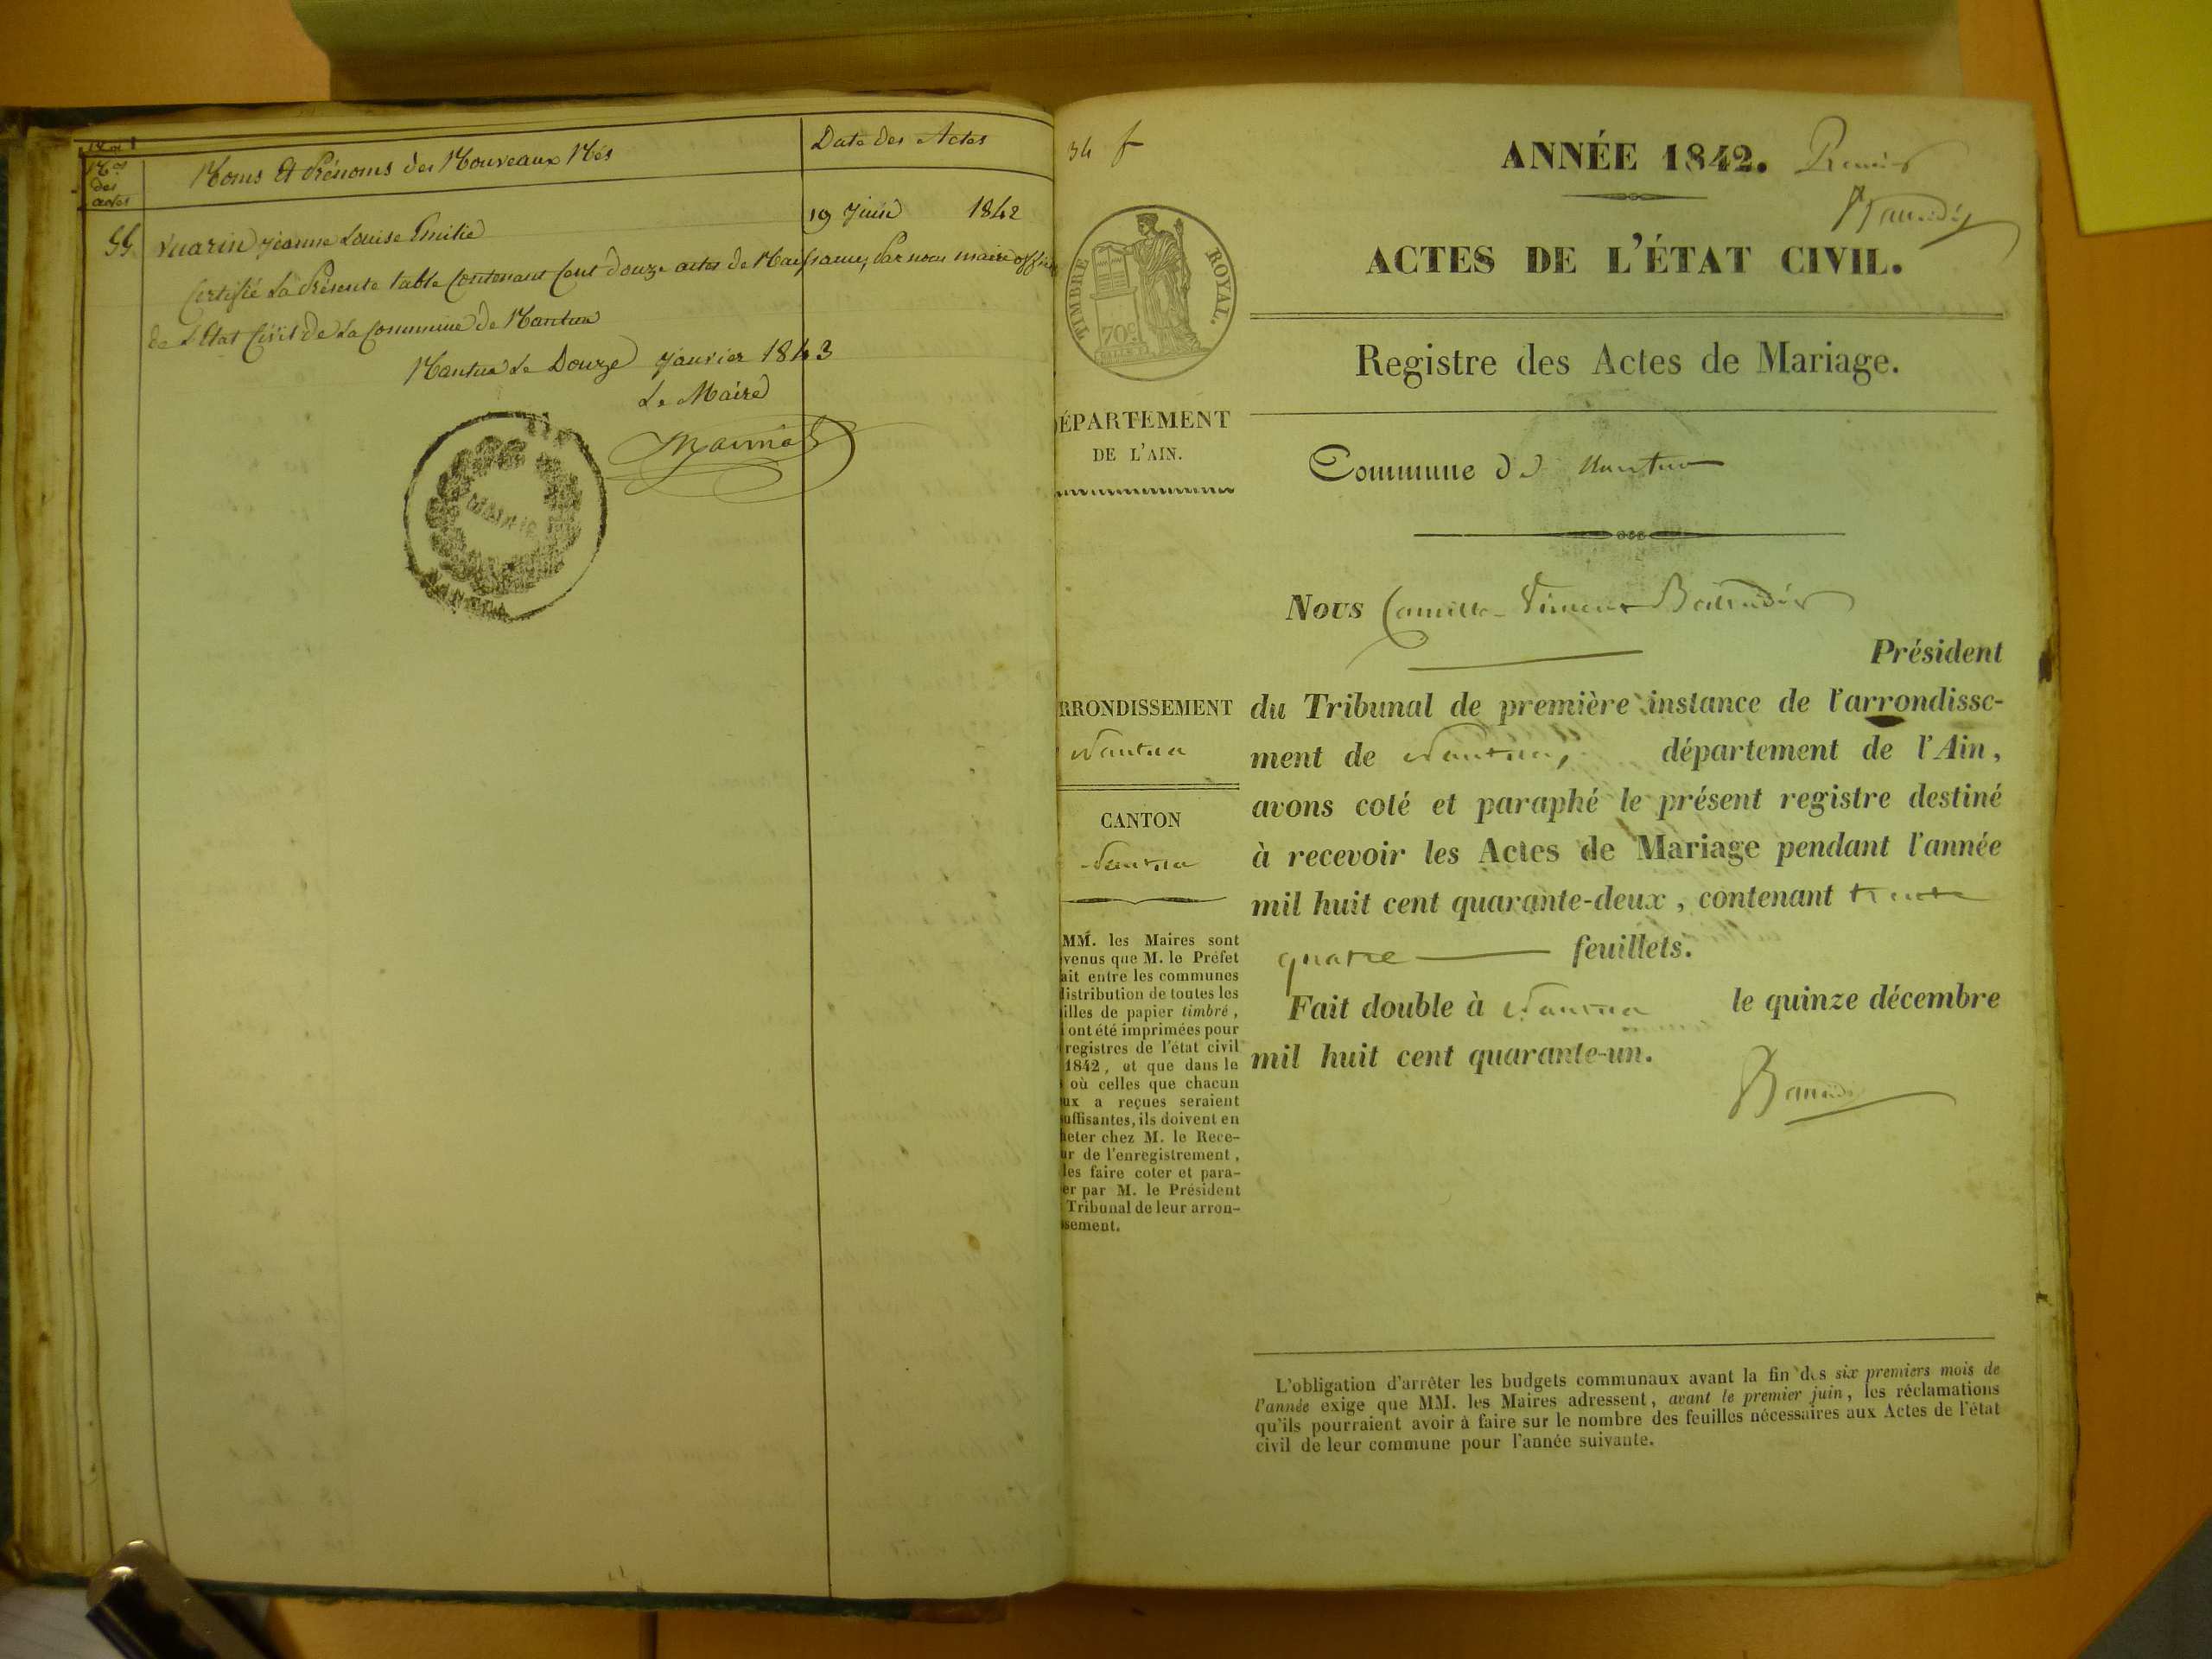 Nos des actes
Noms et Prénoms des Nouveaux Nés
Date des Actes
55 Vuarin jeanne Louise Emilie
19 Juin 1842
Certifié la Présente table Contenant Cent Douze actes de Naissance, Par nous maire officier
de L'Etat Civil de La Commune de Nantua
Nantua Le Douze janvier 1843
Le Maire
MAIRIE
NANTUA
34 f
ANNÉE 1842. Premier
ACTES DE L'ÉTAT CIVIL.
TIMBRE ROYAL.
70c
Registre des Actes de Mariage.
ÉPARTEMENT
DE L'AIN.
Commune de Nantua
Nous Camille
Président
RRONDISSEMENT
Nantua
CANTON
Nantua
du Tribunal de première instance de l'arrondisse-
ment de Nantua, département de l'Ain,
avons coté et paraphé le présent registre destiné
à recevoir les Actes de Mariage pendant l'année
mil huit cent quarante-deux, contenant trente
quatre feuillets.
Fait double à Nantua le quinze décembre
mil huit cent quarante-un.
MM. les Maires sont
venus que M. le Préfet
ait entre les communes
distribution de toutes les
illes de papier timbré,
ont été imprimées pour
registres de l'état civil
1842, et que dans le
où celles que chacun
ux a reçues seraient
uffisantes, ils doivent en
heter chez M. le Rece-
ur de l'enregistrement,
les faire coter et para-
er par M. le Président
Tribunal de leur arron-
sement.
L'obligation d'arrêter les budgets communaux avant la fin des six premiers mois de
l'année exige que MM. les Maires adressent, avant le premier juin, les réclamations
qu'ils pourraient avoir à faire sur le nombre des feuilles nécessaires aux Actes de l'état
civil de leur commune pour l'année suivante.